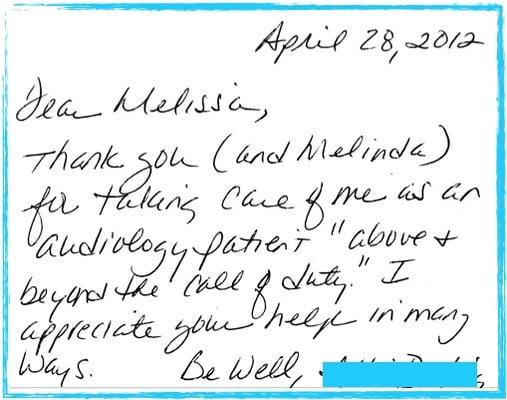 April 28, 2012
Dear Melissa,
Thank you (and Melinda)
for taking care of me as an
audiology patient "above +
beyond the call of duty." I
appreciate your help in many
ways. Be Well,